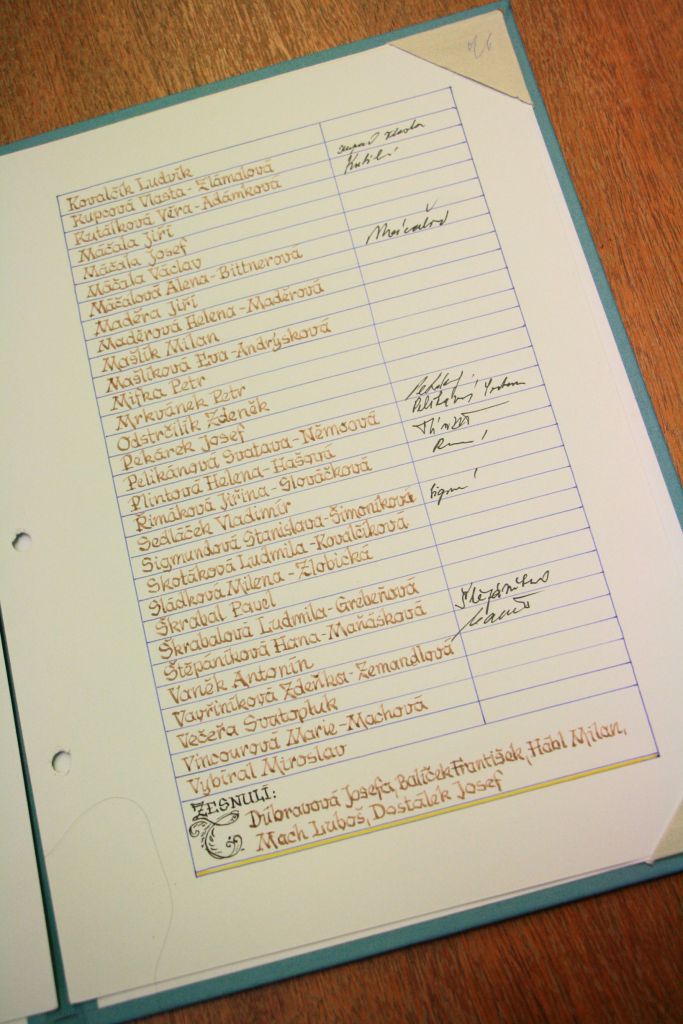 Kovalčík Ludvík
Kupcová Vlasta-Zlámalová
Kutálková Věra-Adámková
Máčala Jiří
Máčala Josef
Máčala Václav
Máčalová Alena-Bittnerová
Maděra Jiří
Maděrová Helena-Maděrová
Mašlík Milan
Mašlíková Eva-Andrýsková
Mifka Petr
Mrkvánek Petr
Odstrčilík Zdeněk
Pekárek Josef
Pelikánová Svatava-Němcová
Plintová Helena-Hašová
Rimáková Jiřina-Slováčková
Sedláček Vladimír
Sigmundová Stanislava-Šimoníková
Skotáková Ludmila-Kovalčíková
Sládková Milena-Zlobická
Škrabal Pavel
Škrabalová Ludmila-Grebeňová
Štěpáníková Hana-Maňásková
Vaněk Antonín
Vavřiníková Zdeňka-Zemandlová
Večeřa Svatopluk
Vincourová Marie-Machová
Vybíral Miroslav
ZESNULÍ:
Důbravová Josefa, Balíček František, Hábl Milan,
Mach Luboš, Dostálek Josef